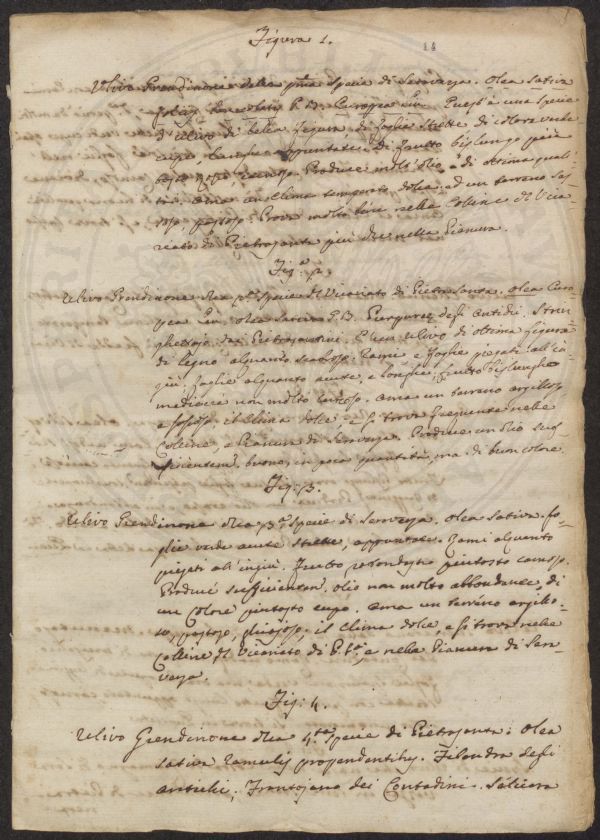 Figura 1.
14
Ulivo Grendinone della pma Speie di Seraveza. Olea Sativa
folijs lanceolatis P.B. Europea Lin. Quest'è una Speie
d'ulivo di bella figura, di foglie strette di colore verde
cupo, lunghe, appuntate: di frutto bislungo
carnoso. Produce molt'olio, e di ottima quali
tà. Ama un clima temperato dolce, ed un terreno sas
soso, pastoso. Prova molto bene nelle Coline del Vica
riato di Pietrasanta più che nella Pianura.
Fig.a 2.
Ulivo Grendinone della 2.a Speie del Vicariato di Pietra Santa. Olea Euro
pea Lin. olea sativa P.B. degl'Antichi. Strin
ghettajo dei Pietrasantini. È un ulivo di ottima figura
di legno alquanto scabroso. Rami e foglie piegati all'in
giù, foglie alquanto acute, e lunghe, frutto bislungo
mediocre non molto carnoso. Ama un terreno argilloso
e sassoso, il Clima dolce, e si trova frequente nelle
Colline, e Pianura di Seraveza. Produce un olio suf
ficientem. buono, in poca quantità, ma di buon colore
Fig: 3.
Ulivo Grendinone della 3.a Speie di Seraveza. Olea Sativa. fo
glie verdi acute strette, appuntate. Rami alquanto
piegati all'ingiù. Frutto rotondastro piutosto carnoso.
Produce sufficientem. olio non molto abbondante, di
un Colore piutosto cupo. Ama un terreno argillo
so, pastoso, ghiajoso, il Clima dolce, e si trova nelle
Colline del Vicariato di P.Sta, e nella Pianura di Ser
aveza.
Fig: 4.
Ulivo Grendinone della 4.ta Speie di Pietrasanta: Olea
sativa ramulis propendentibus. Filandra degli
antichi; Frantojano dei Contadini.